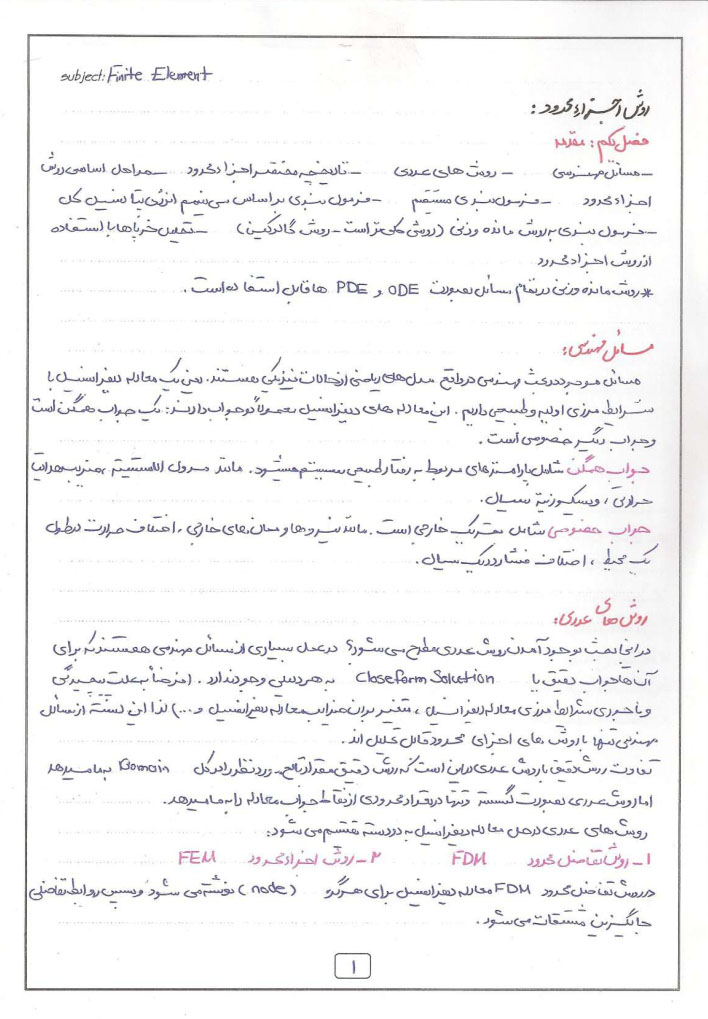 subject: Finite Element
روش اجزاء محدود:
فصل یکم: مقدمه
– مسائل مهندسی – روش های عددی – تاریخچه مختصر اجزاء محدود – مراحل اساسی روش
اجزاء محدود – فرمول بندی مستقیم – فرمول بندی بر اساس می نیمم انرژی پتانسیل کل
– فرمول بندی به روش مانده وزنی (روش کلی تر است – روش گالرکین) – تحلیل خرپاها با استفاده
از روش اجزاء محدود
* روش مانده وزنی در تمام مسائل بصورت ODE و PDE ها قابل استفاده است.
مسائل مهندسی:
مسائل موجود در بحث مهندسی در واقع مدل های ریاضی از حالات فیزیکی هستند. یعنی یک معادله دیفرانسیل با
شرایط مرزی اولیه و طبیعی داریم. این معادله های دیفرانسیل معمولاً دو جواب دارند: یک جواب همگن است
و جواب دیگر خصوصی است.
جواب همگن شامل پارامترهای مربوط به رفتار طبیعی سیستم میشود. مانند مدول الاستیسیته، ضریب هدایت
حرارتی، ویسکوزیته سیال.
جواب خصوصی شامل تحریک خارجی است. مانند نیروها و ممان های خارجی، اختلاف حرارت در طول
یک محیط، اختلاف فشار در یک سیال.
روش های عددی:
در اینجا بحث بوجود آمدن روش عددی مطرح می شود؟ در عمل بسیاری از مسائل مهندسی هستند که برای
آن ها جواب دقیق یا Closeform Solution به هر دلیلی وجود ندارد. (فرضاً به علت پیچیدگی
و ناجوری شرایط مرزی معادله دیفرانسیل، متغیر بودن ضرایب معادله دیفرانسیل و...) لذا این دسته از مسائل
مهندسی تنها با روش های اجزای محدود قابل تحلیل اند.
تفاوت روش دقیق با روش عددی در این است که روش دقیق مقدار تابع مورد نظر را در کل Domain به ما میدهد
اما روش عددی بصورت گسسته و تنها در تعداد محدودی از نقاط جواب معادله را به ما میدهد.
روش های عددی در حل معادله دیفرانسیل به دو دسته تقسیم می شود:
۱– روش تفاضل محدود FDM ۲– روش اجزاء محدود FEM
در روش تفاضل محدود FDM معادله دیفرانسیل برای هر گره (node) نوشته می شود و سپس روابط تفاضلی
جایگزین مشتقات می شود.
۱